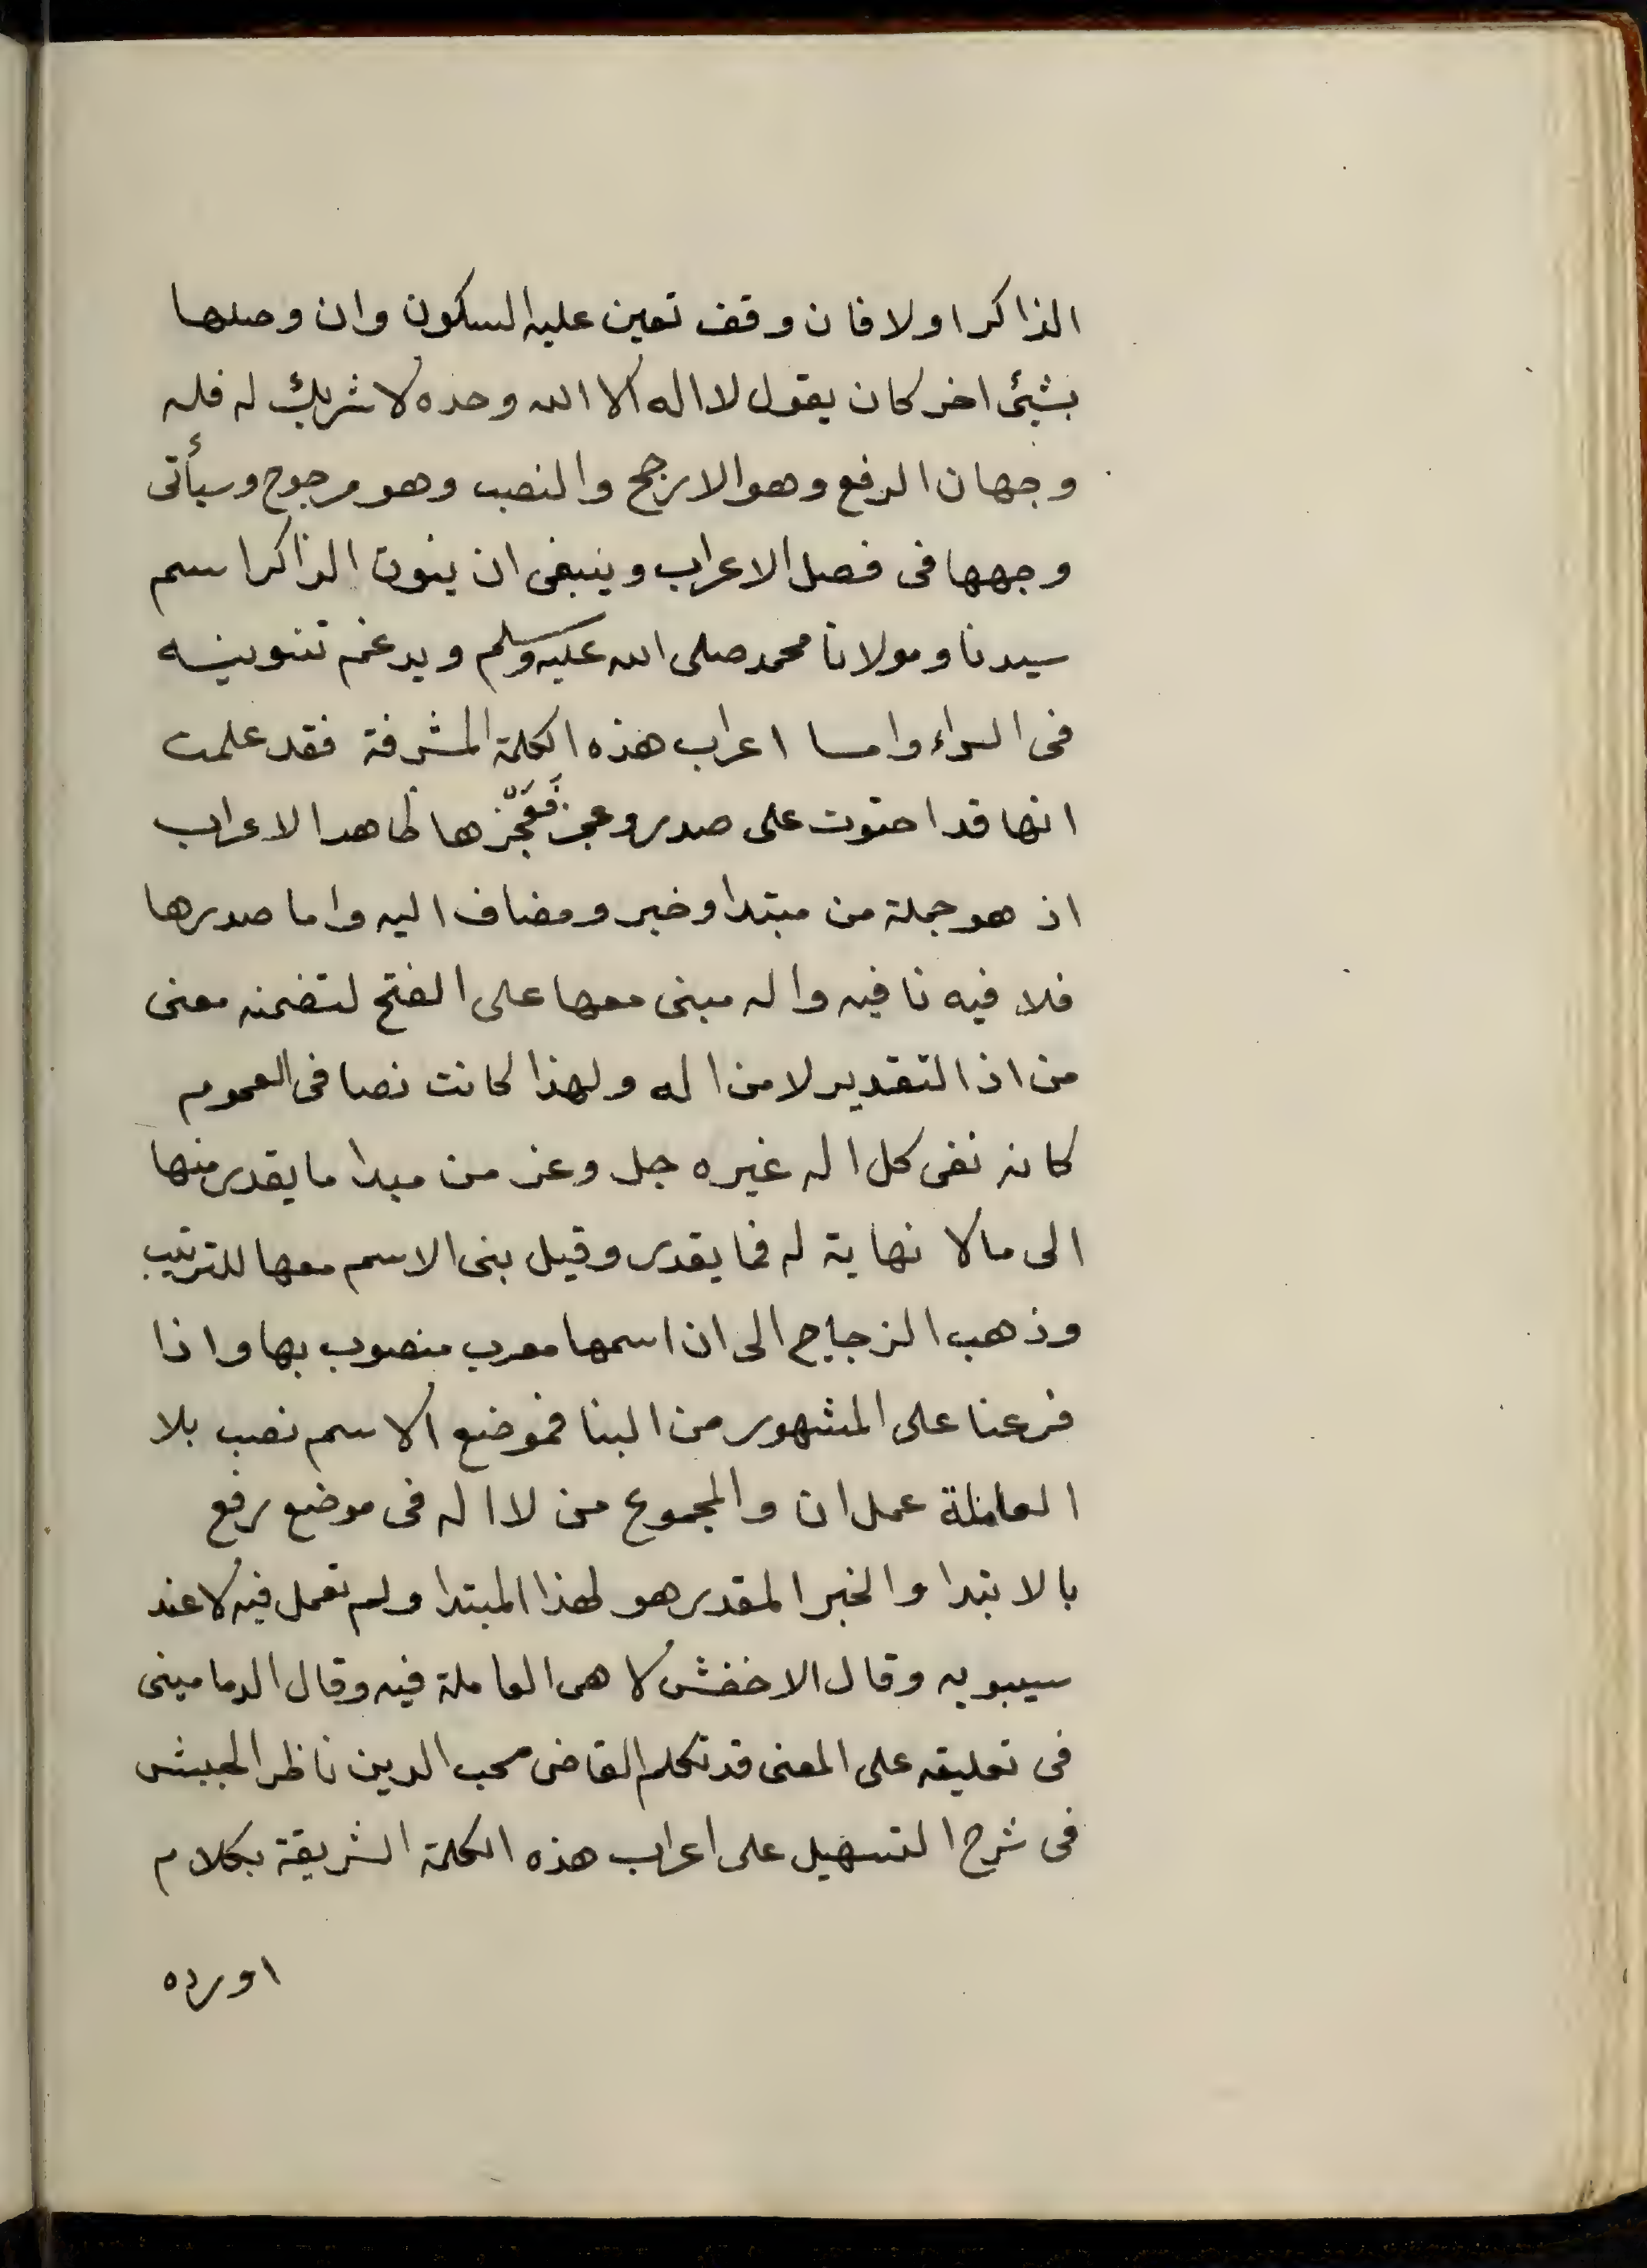 الذاكر اولا فان وقف تعين عليه السكون وان وصلها
بشئ اخر كان يقول لا اله الا الله وحده لا شريك له فله
وجهان الرفع وهو الارجح والنصب وهو مرجوح وسيأتى
وجهها فى فصل الاعراب وينبغى ان ينون الذاكر اسم
سيدنا ومولانا محمد صلى الله عليه وسلم ويدغم تنوينه
فى الراء واما اعراب هذه الكلمة المشرفة فقد علمت
انها قد احتوت على صدر وعجز فَعَجُزها ظاهر الاعراب
اذ هو جملة من مبتدا وخبر ومضاف اليه واما صدرها
فلا فيه نافيه واله مبنى معها على الفتح لتضمنه معنى
من اذ التقدير لا من اله ولهذا كانت نصا فى العموم
كانه نفى كل اله غيره جل وعز من مبدا ما يقدر منها
الى مالا نهاية له فما يقدر وقيل بنى الاسم معها للترتيب
وذهب الزجاج الى ان اسمها معرب منصوب بها واذا
فرعنا على المشهور من البنا فموضع الاسم نصب بلا
العاملة عمل ان والمجموع من لا اله فى موضع رفع
بالابتدا والخبر المقدر هو لهذا المبتدا ولم تعمل فيه لا عند
سيبويه وقال الاخفش لا هى العاملة فيه وقال الدمامينى
فى تعليقه على المعنى قد تكلم القاضى محب الدين ناظر الجيش
فى شرح التسهيل على اعراب هذه الكلمة الشريفة بكلام
اورده